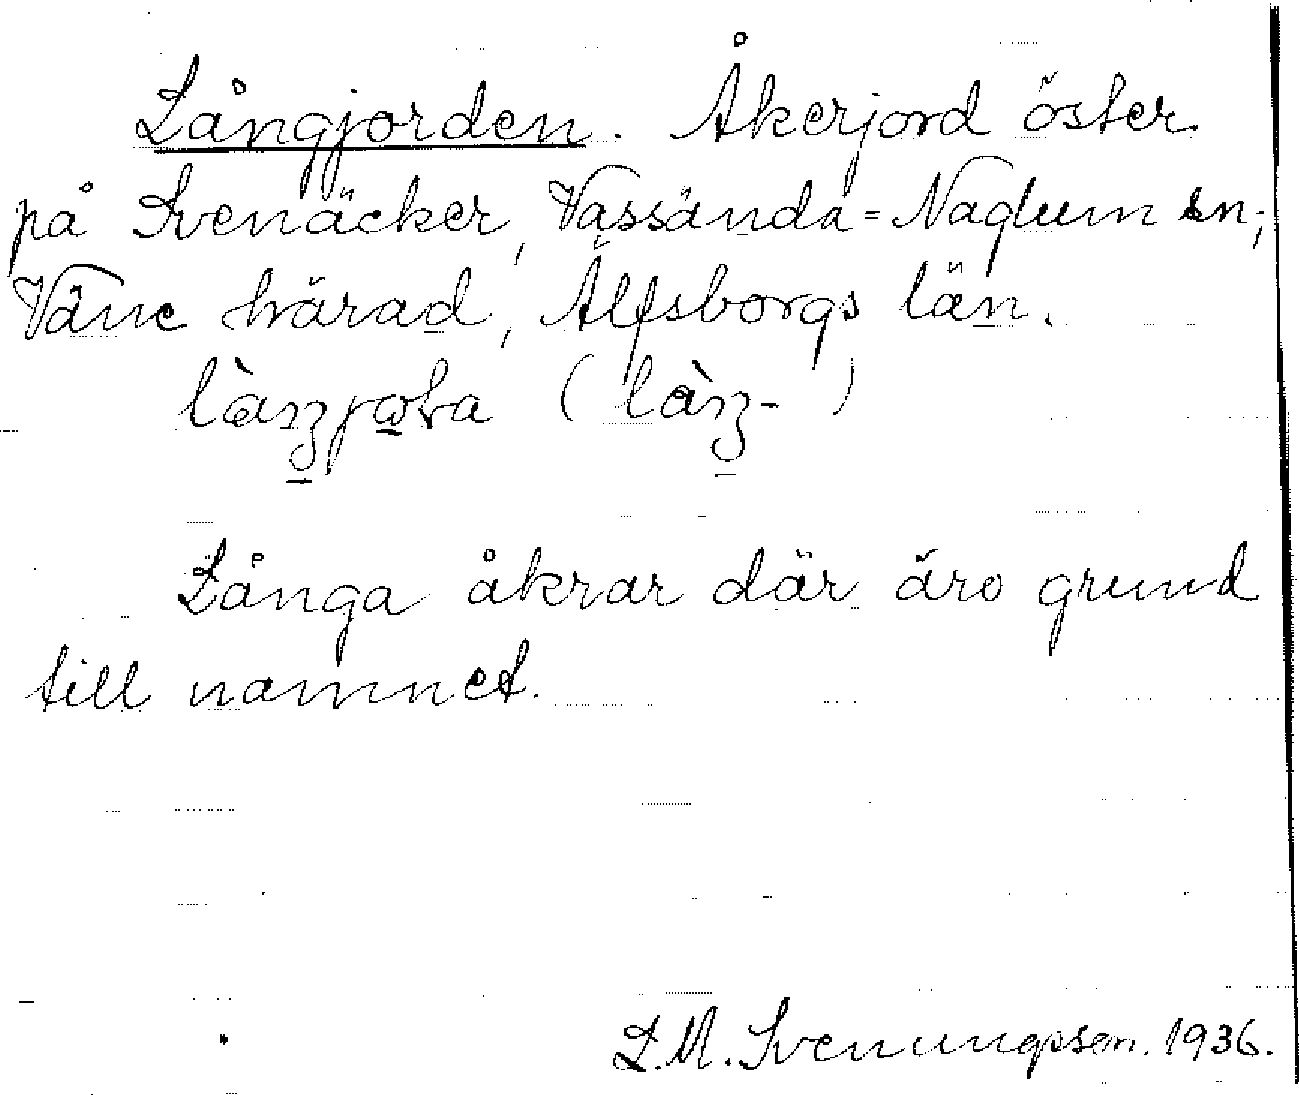 Långjorden. Åkerjord öster
på Svenäcker, Vassända-Naglum sn;
Väne härad, Älfsborgs län.
Långa åkrar där äro grund
till namnet.
L.M. Svenungsson. 1936.